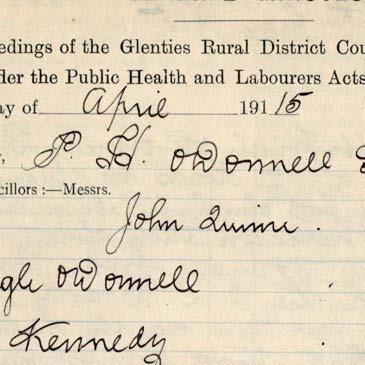 edings of the Glenties Rural District Cou
der the Public Health and Labourers Acts
ay of April 1915
, P. H. O'Donnell E
cillors :—Messrs.
John Quinn .
gh O'Donnell
Kennedy